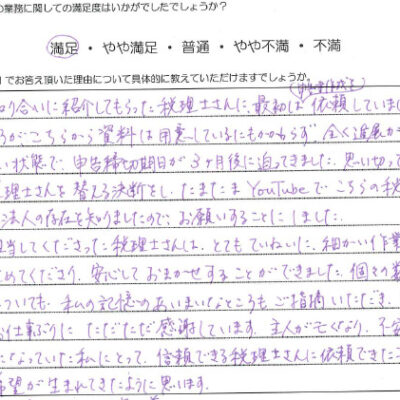 の業務に関しての満足度はいかがでしたでしょうか?
満足・やや満足・普通・やや不満・不満
でお答え頂いた理由について具体的に教えていただけますでしょうか。
知り合いに紹介してもらった税理士さんに、最初は依頼していまし
ろがこちらから資料は用意しているにもかかわらず、全く進展が
い状態で、申告締切期日が3ヶ月後に迫ってきました。思い切って
理士さんを替える決断をし、たまたまYouTubeでこちらの税
法人の存在を知りましたので、お願いすることにしました。
担当してくださった税理士さんは、とてもていねいに、細かい作業
めてくださり、安心しておまかせすることができました。個々の
ついても、私の記憶のあいまいなところもご指摘いただき、
お仕事ぶりにただただ感謝しています。主人が亡くなり、不安
になっていた私にとって、信頼できる税理士さんに依頼できたこ
希望が生まれてきたように思います。